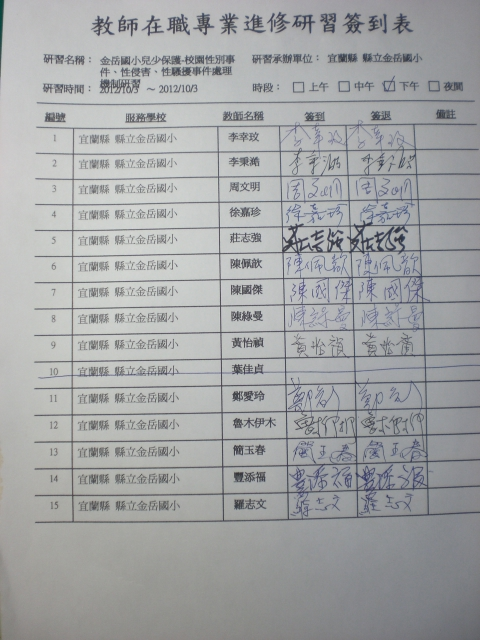 教師在職專業進修研習簽到表
研習名稱： 金岳國小兒少保護-校園性別事 研習承辦單位： 宜蘭縣 縣立金岳國小
件、性侵害、性騷擾事件處理
機制研習
研習時間： 2012/10/3 ～2012/10/3 時段： □ 上午 □ 中午 ☑ 下午 □ 夜間
編號 服務學校 教師名稱 簽到 簽退 備註
1 宜蘭縣 縣立金岳國小 李幸玫 李幸玫 李幸玫
2 宜蘭縣 縣立金岳國小 李秉澔 李秉澔 李秉澔
3 宜蘭縣 縣立金岳國小 周文明 周文明 周文明
4 宜蘭縣 縣立金岳國小 徐嘉珍 徐嘉珍 徐嘉珍
5 宜蘭縣 縣立金岳國小 莊志強 莊志強 莊志強
6 宜蘭縣 縣立金岳國小 陳佩歆 陳佩歆 陳佩歆
7 宜蘭縣 縣立金岳國小 陳國傑 陳國傑 陳國傑
8 宜蘭縣 縣立金岳國小 陳綠曼
9 宜蘭縣 縣立金岳國小 黃怡禎 黃怡禎 黃怡禎
10 宜蘭縣 縣立金岳國小 葉佳貞
11 宜蘭縣 縣立金岳國小 鄭愛玲
12 宜蘭縣 縣立金岳國小 魯木伊木
13 宜蘭縣 縣立金岳國小 簡玉春 簡玉春 簡玉春
14 宜蘭縣 縣立金岳國小 豐添福 豐添福 豐添福
15 宜蘭縣 縣立金岳國小 羅志文 羅志文 羅志文